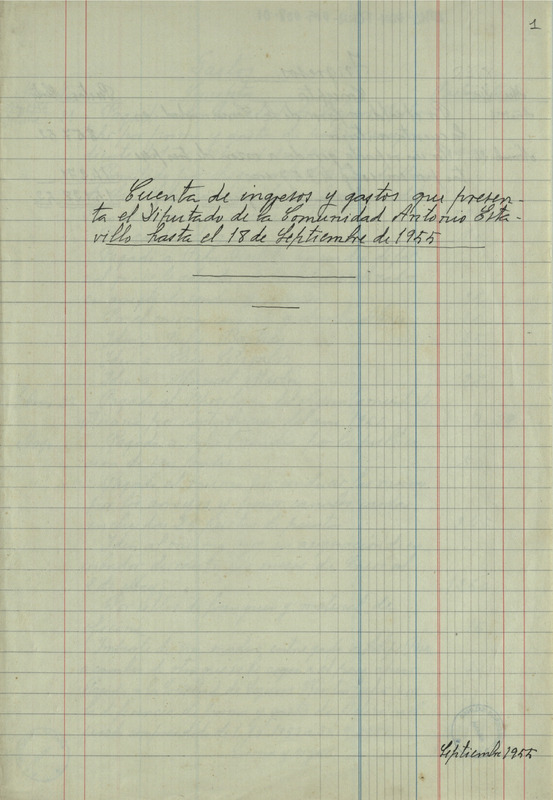 1
Cuenta de ingresos y gastos que presen-
ta el Diputado de la Comunidad Antonio Esta-
villo hasta el 18 de Septiembre de 1955
Septiembre 1955